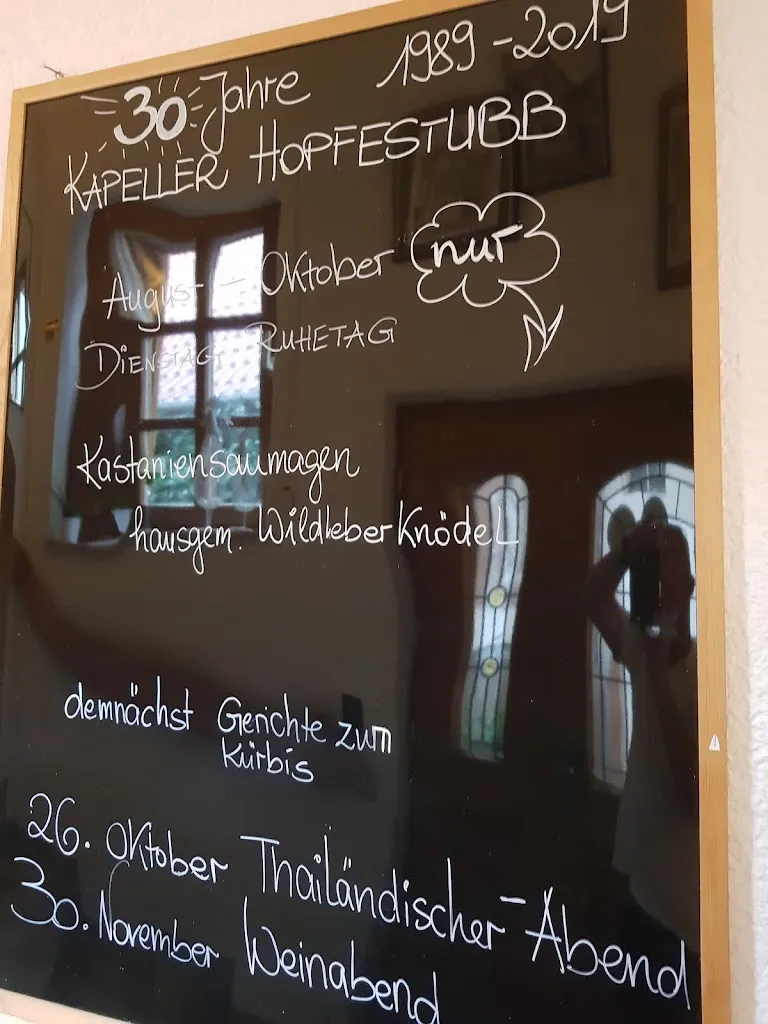 30 Jahre 1989-2019
KAPELLER HOPFESTUBB
August - Oktober nur
DIENSTAG RUHETAG
Kastaniensaumagen
hausgem. Wildleberknödel
demnächst Gerichte zum
Kürbis
26. Oktober Thailändischer-Abend
30. November Weinabend